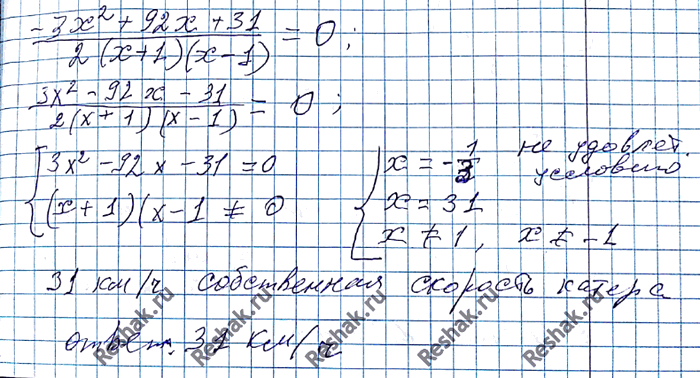 -3x² + 92x + 31 / 2(x+1)(x-1) = 0;
3x² - 92x - 31 / 2(x+1)(x-1) = 0;
{ 3x² - 92x - 31 = 0
(x+1)(x-1 ≠ 0
[ x = -1/3 не удовлет. условию
x = 31
x ≠ 1, x ≠ -1
31 км/ч собственная скорость катера
ответ. 31 км/ч
Reshak.ru Reshak.ru Reshak.ru Reshak.ru